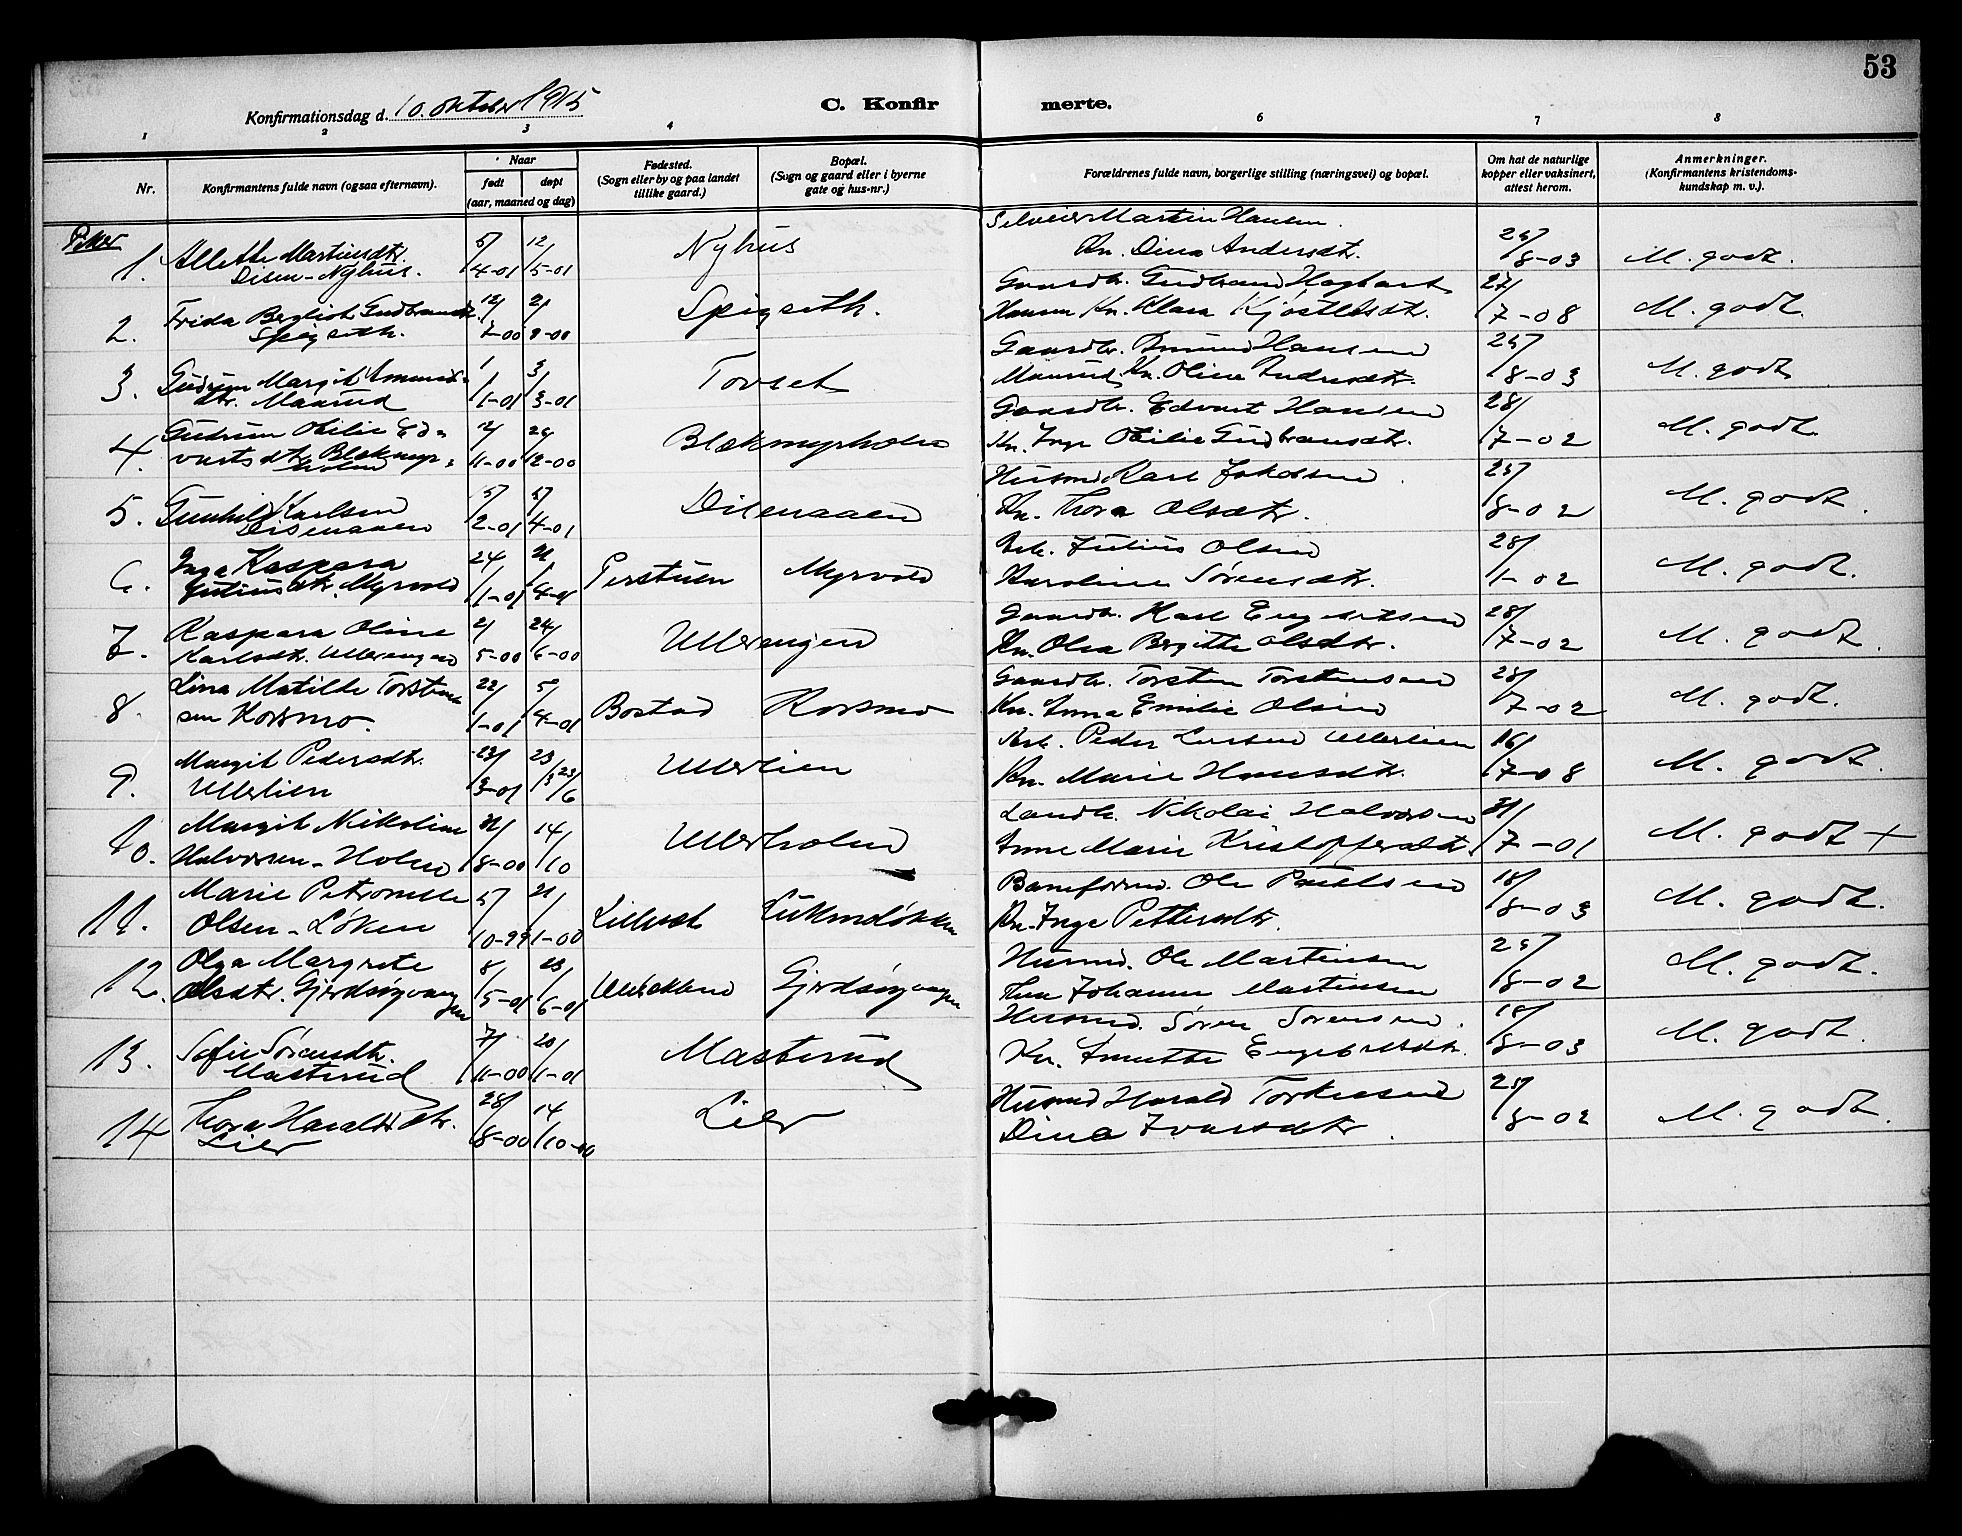 53
Konfirmationsdag d. 10. oktober 1915
C. Konfir merte.
1 2 3 4 6 7 8
Nr.
Konfirmantens fulde navn (ogsaa efternavn).
Naar
født døpt
(aar, maaned og dag)
Fødested.
(Sogn eller by og paa landet
tillike gaard.)
Bopæl.
(Sogn og gaard eller i byerne
gate og hus-nr.)
Forældrenes fulde navn, borgerlige stilling (næringsvei) og bopæl.
Om hat de naturlige
kopper eller vaksinert,
attest herom.
Anmerkninger.
(Konfirmantens kristendoms-
kundskap m. v.).
Piker
Selveier Martin Hansen
1. Allette Martinsdtr. 5/ 12/ Nyhus Kn. Dina Andersdtr. 25/
Disen-Nyhus. 4-01 5-01 8-03 M. godt.
2. Frida Gudbrandsdtr. 12/ 2/ Spigseth. Gaardbr. Gudbrand Hagbart 27/
Spigseth. 7-00 Hansen Kn. Klara 7-08 M. godt.
3. Gudrun Margit Amunds- 1/ 3/ Torset Gaardbr. Amund Hansen 25/
dtr. Maarud 1-01 3-01 Maarud, Kn. Oline Andersdtr. 8-03 M. godt
4. Gudrun Otilie Ed- 12/ 26/ Blekmyrholen Gaardbr. Edvart Hansen 28/
vartsdtr. Blekmyr- 11-00 12-00 Kn. Inge Otilie Gudbrandsdtr. 7-02 M. godt
holen
5. Gunhild Karlsen 15/ 5/ Disenaaen Husmd Karl Jakobsen 25/
Disenaaen 2-01 4-01 Kn. Thora Olsdtr. 8-02 M. godt.
6. Inga Kaspara 24/ 21/ Perstuen Myrvold Arb. Julius Olsen 28/
Juliusdtr. Myrvold 1-01 4-01 Karoline Sørensdtr. 1-02 M. godt.
7. Kaspara Oline 2/ 24/ Ullerengen Gaardbr. Karl Engebretsen 28/
Karlsdtr. Ullerengen 5-00 6-00 Kn. Olea Bergitte Olsdtr. 7-02 M. godt.
8. Lina Matilde Torsten- 22/ 5/ Bostad Korsmo Gaardbr. Torsten Torstensen 28/
sen Korsmo. 1-01 4-01 Kn. Anna Emilie Olsen 7-02 M. godt.
9. Margit Pedersdtr. 23/ 23/ Ullerlien Arb. Peder Larsen Ullerlien 16/
Ullerlien 3-01 3 23/6 Kn. Marie Hansdtr. 7-08 M. godt.
10. Margit Nikoline 31/ 14/ Ullerholen Landh. Nikolai Halvorsen 31/
Halvorsen-Holen 8-00 10 Anne Marie Kristoffersdtr. 7-01 M. godt +
11. Marie Petronelle 5/ 21/ Baneform. Ole Paulsen 18/
Olsen-Løken 10-99 1-00 Kn. Inge Pettersdtr. 8-03 M. godt.
12. Olga Margrete 8/ 23/ Husmd. Ole Martinsen 25/
Olsdtr. Gjerdsingvangen 5-01 6-01 Gjerdsingvangen Johanne Martinsen 8-02 M. godt.
13. Sofie Sørensdtr. 7/ 20/ Masterud Husmd. Søren Sørensen. 18/
Masterud 11-00 1-01 Kn. Annette Engebretsdtr. 8-03 M. godt.
14 Thora Haraldsdtr. 28/ 14/ Lier Husmd Harald Torkelsen 25/
Lier 8-00 10-00 Dina Ivarsdtr. 8-02 M. godt.